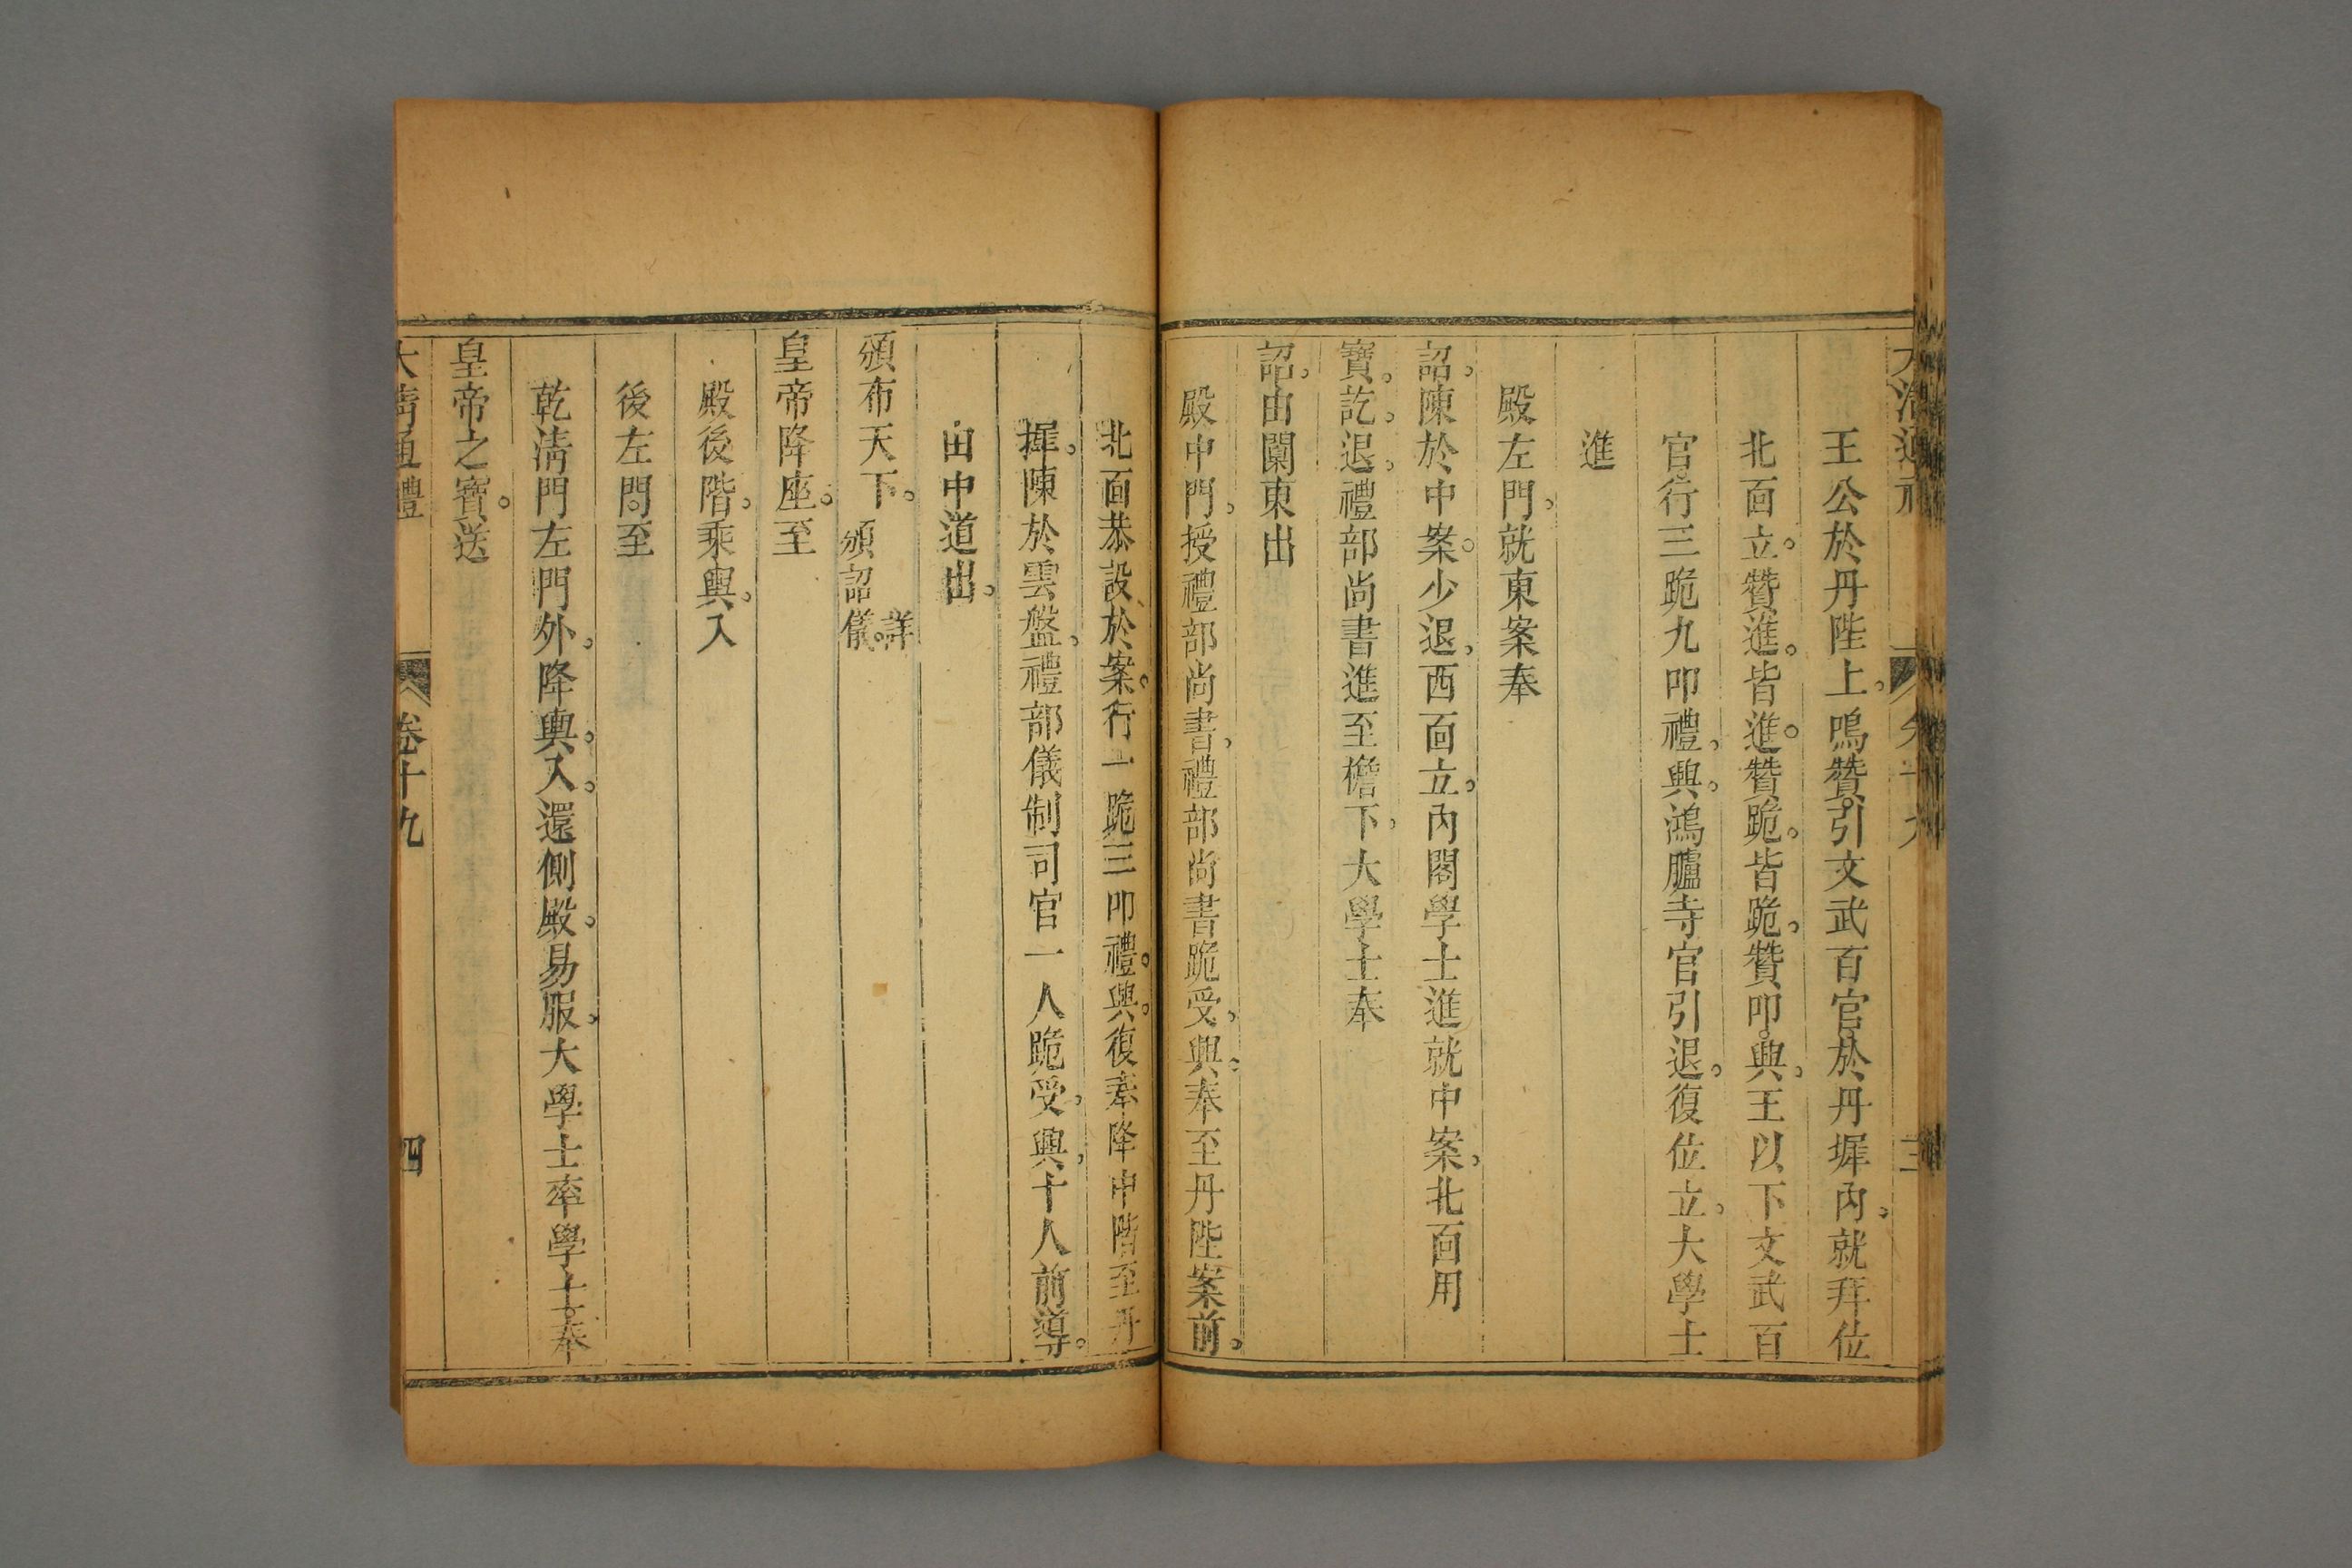 大清通禮 卷十九 三
王公於丹陛上。鳴贊。引文武百官。於丹墀內。就拜位
北面立。贊進。皆進。贊跪。皆跪。贊叩。興。王以下文武百
官。行三跪九叩禮。興。鴻臚寺官引退。復位立。大學士
進
殿左門。就東案奉
詔。陳於中案。少退。西面立。內閣學士進就中案。北面用
寶。訖。退。禮部尚書進至檐下。大學士奉
詔。由闑東出
殿中門。授禮部尚書。禮部尚書跪受。興。奉至丹陛案前。
北面恭設於案。行一跪三叩禮。興。復奉降中階至丹
墀。陳於雲盤。禮部儀制司官一人跪受。興。十人前導。
由中道出。
頒布天下。詳頒詔儀。
皇帝降座。至
殿後階。乘輿。入
後左門。至
乾清門左門外。降輿。入。還側殿。易服。大學士率學士。奉
皇帝之寶。送
大清通禮 卷十九 四